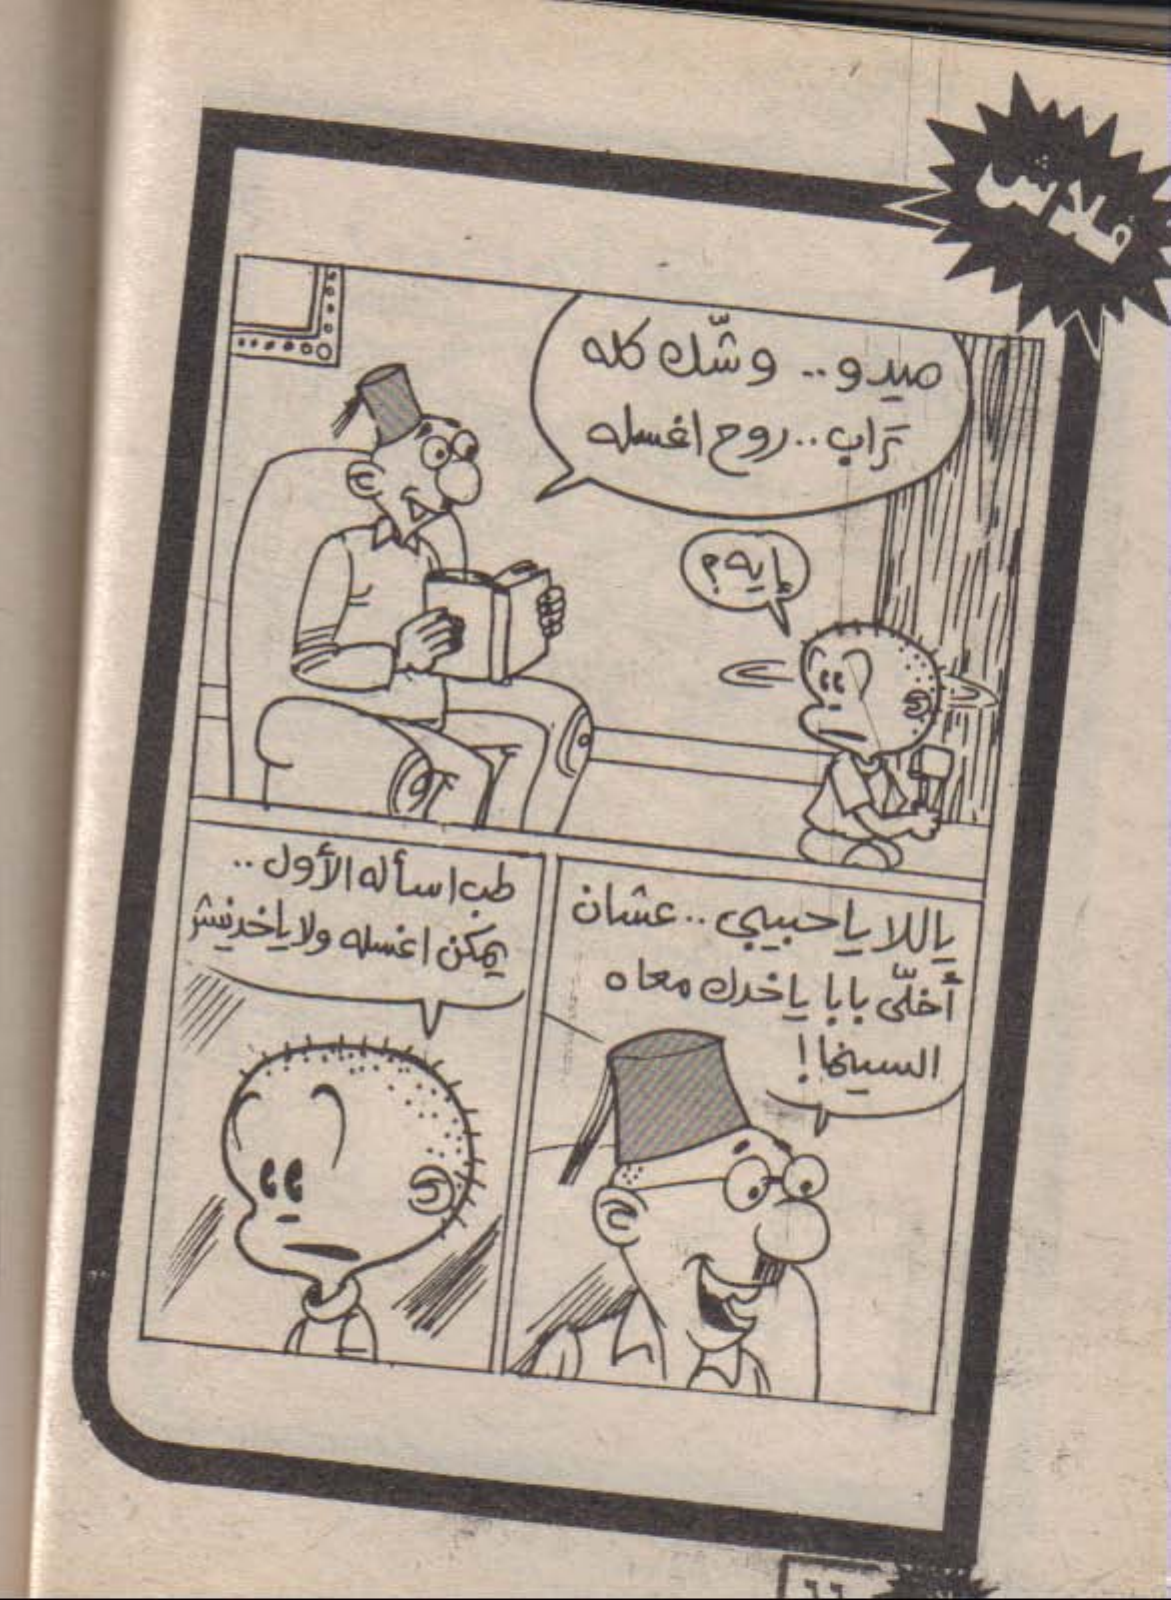 فلاش
ميدو.. وشّك كله
تراب.. روح اغسله
إيه؟
ياللا يا حبيبي.. عشان
أخلّي بابا ياخدك معاه
السينما!
طب اسأله الأول..
يمكن اغسله ولا ياخدنيش
٦٦